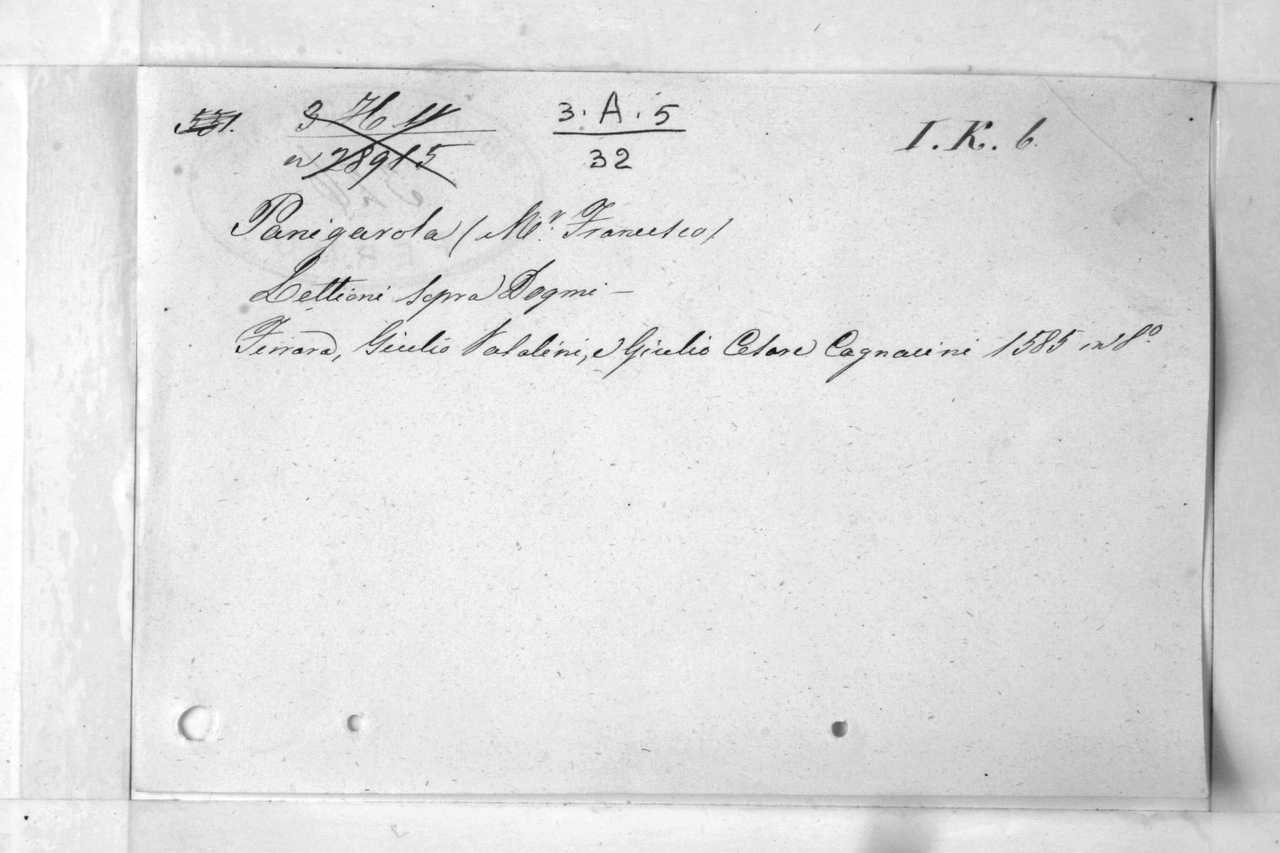 551. 3 H 11 3. A. 5 I. K. 6.
n 28915 32
Panigarola (Mr. Francesco)
Lettioni sopra Dogmi —
Ferrara, Giulio Vasalini, e Giulio Cesare Cagnacini 1585 in 8º